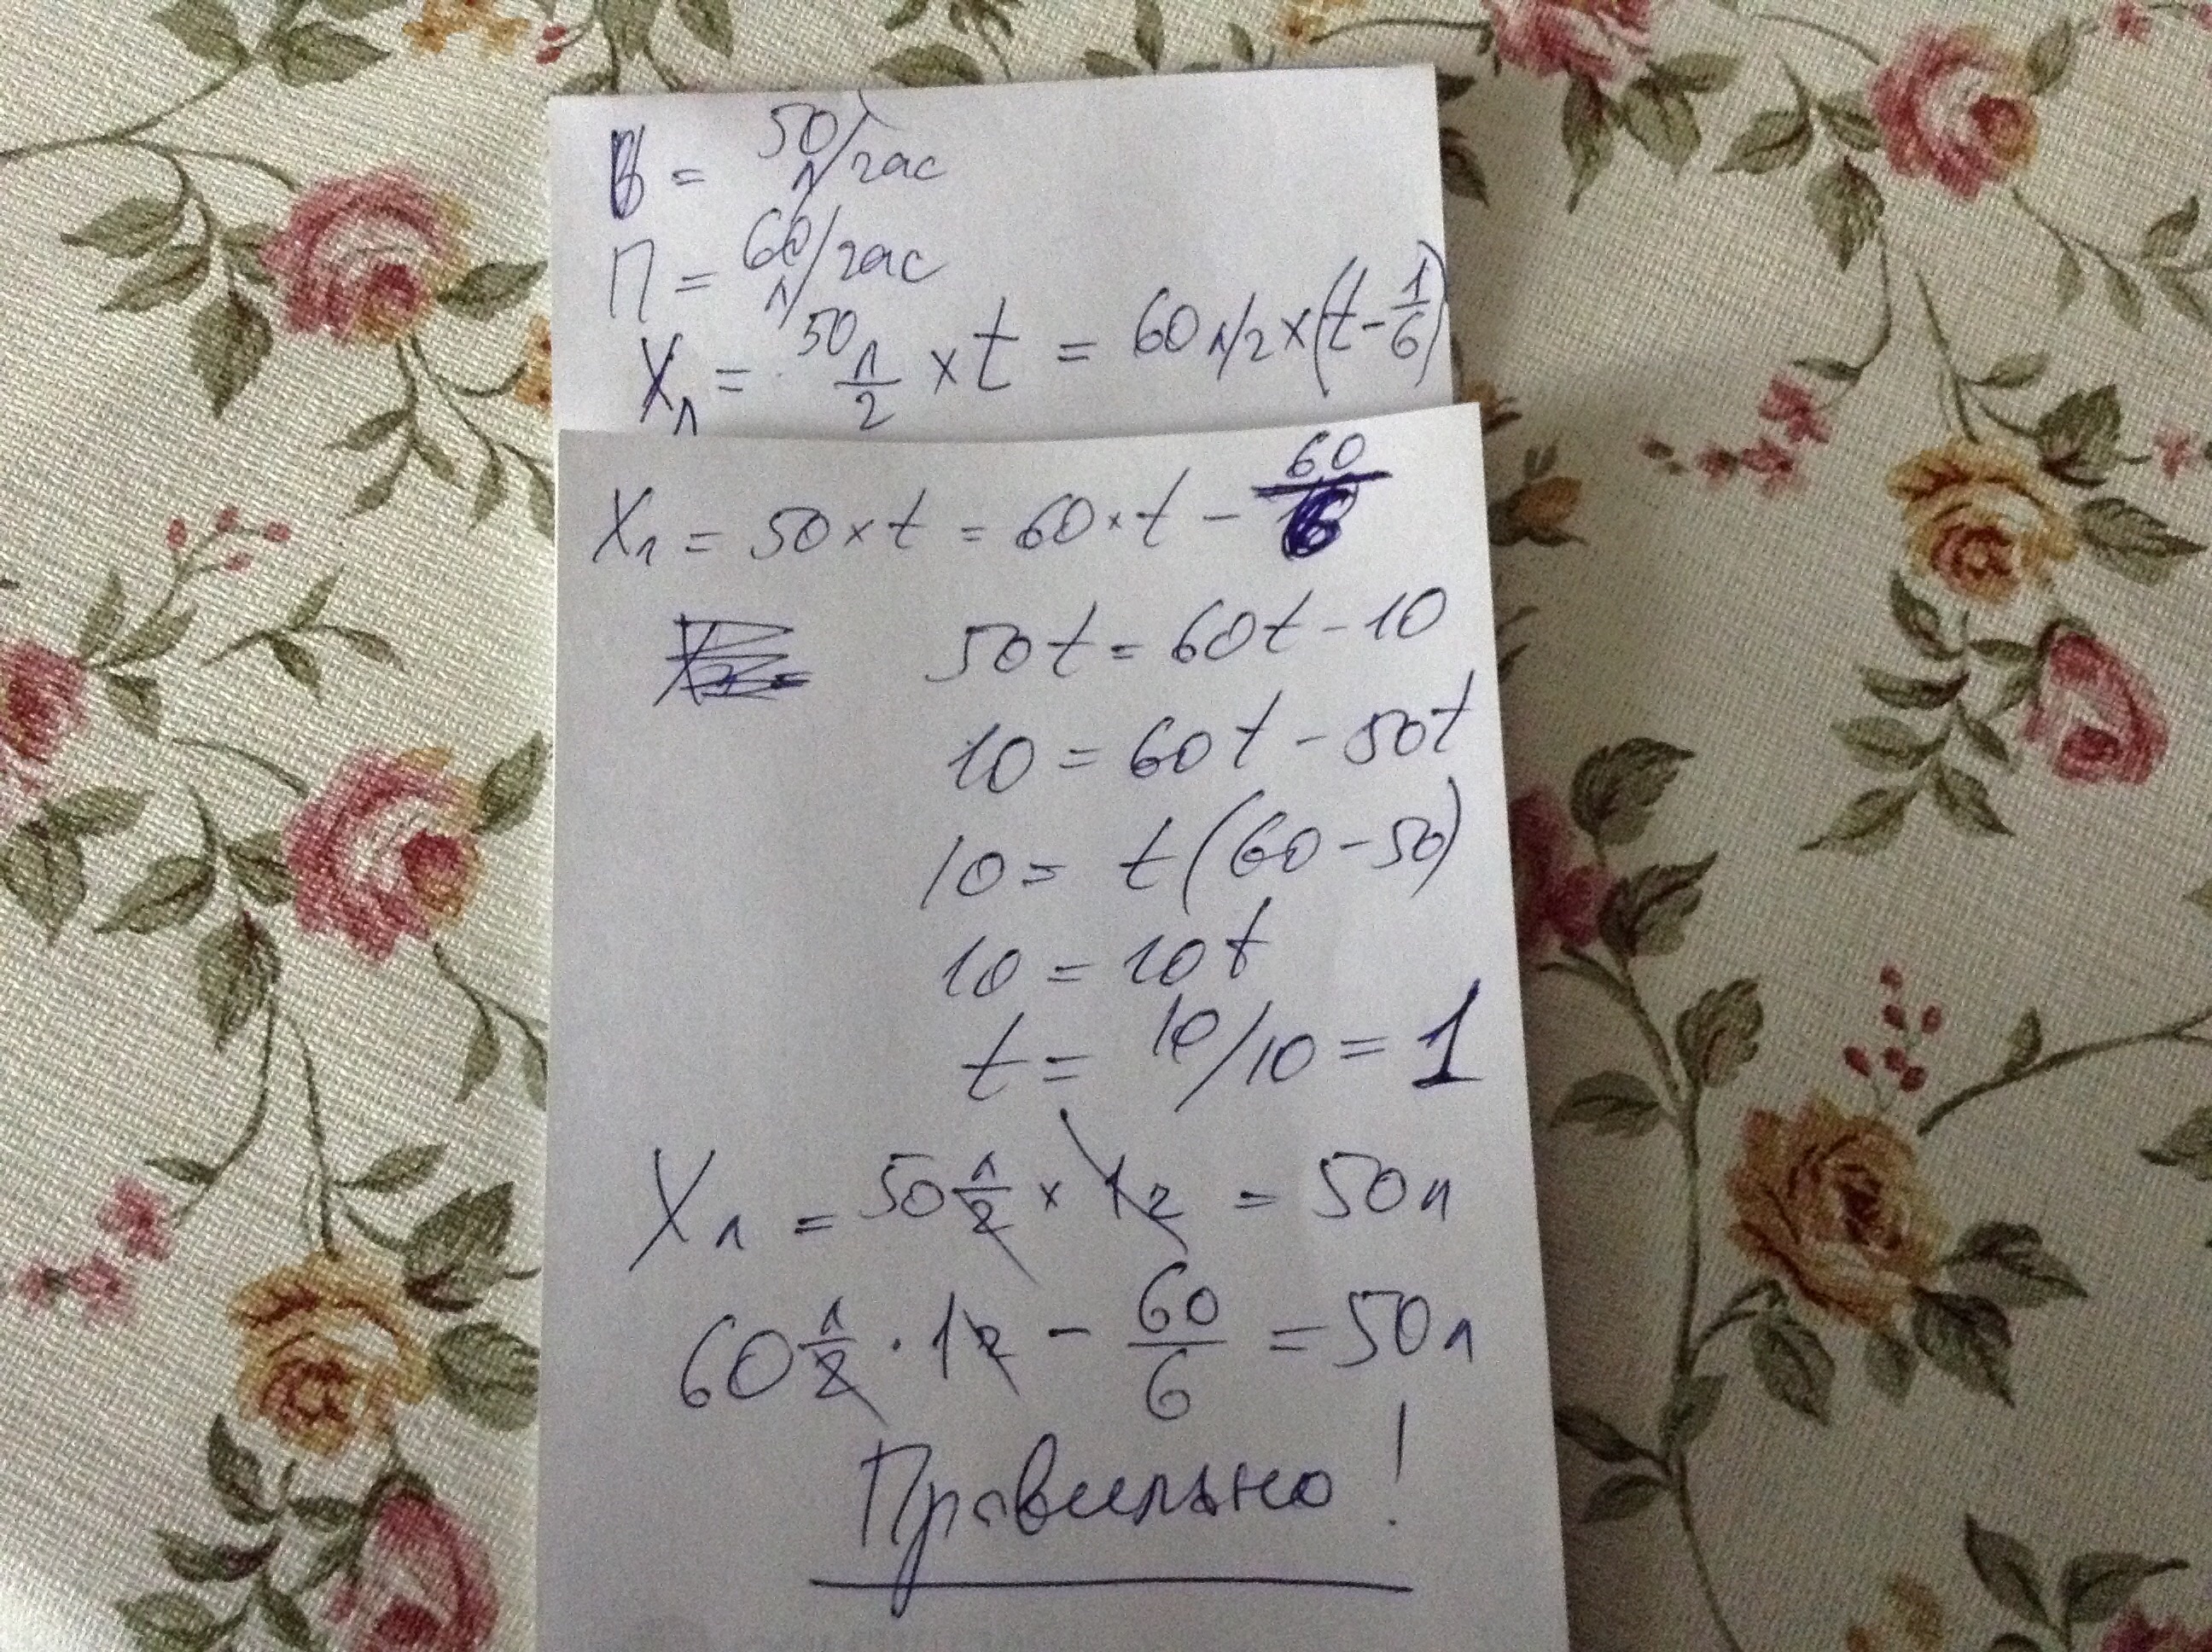 В = 50 л/час
П = 60 л/час
Xл = 50 л/г × t = 60 л/г × (t - 1/6)
Xл = 50 × t = 60 × t - 60/6
50t = 60t - 10
10 = 60t - 50t
10 = t(60 - 50)
10 = 10t
t = 10/10 = 1
Xл = 50 л/г × 1г = 50л
60 л/г · 1г - 60/6 = 50л
Правильно!